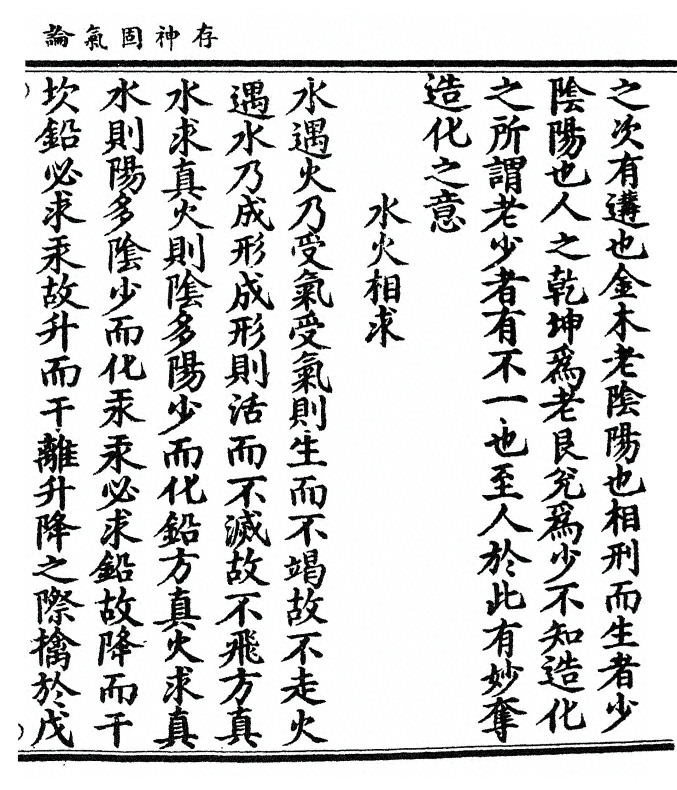 存神固氣論
之次有遘也金木老陰陽也相刑而生者少
陰陽也人之乾坤爲老艮兊爲少不知造化
之所謂老少者有不一也至人於此有妙奪
造化之意
水火相求
水遇火乃受氣受氣則生而不竭故不走火
遇水乃成形成形則活而不滅故不飛方真
水求真火則陰多陽少而化鉛方真火求真
水則陽多陰少而化汞汞必求鉛故降而干
坎鉛必求汞故升而干離升降之際擒於戊